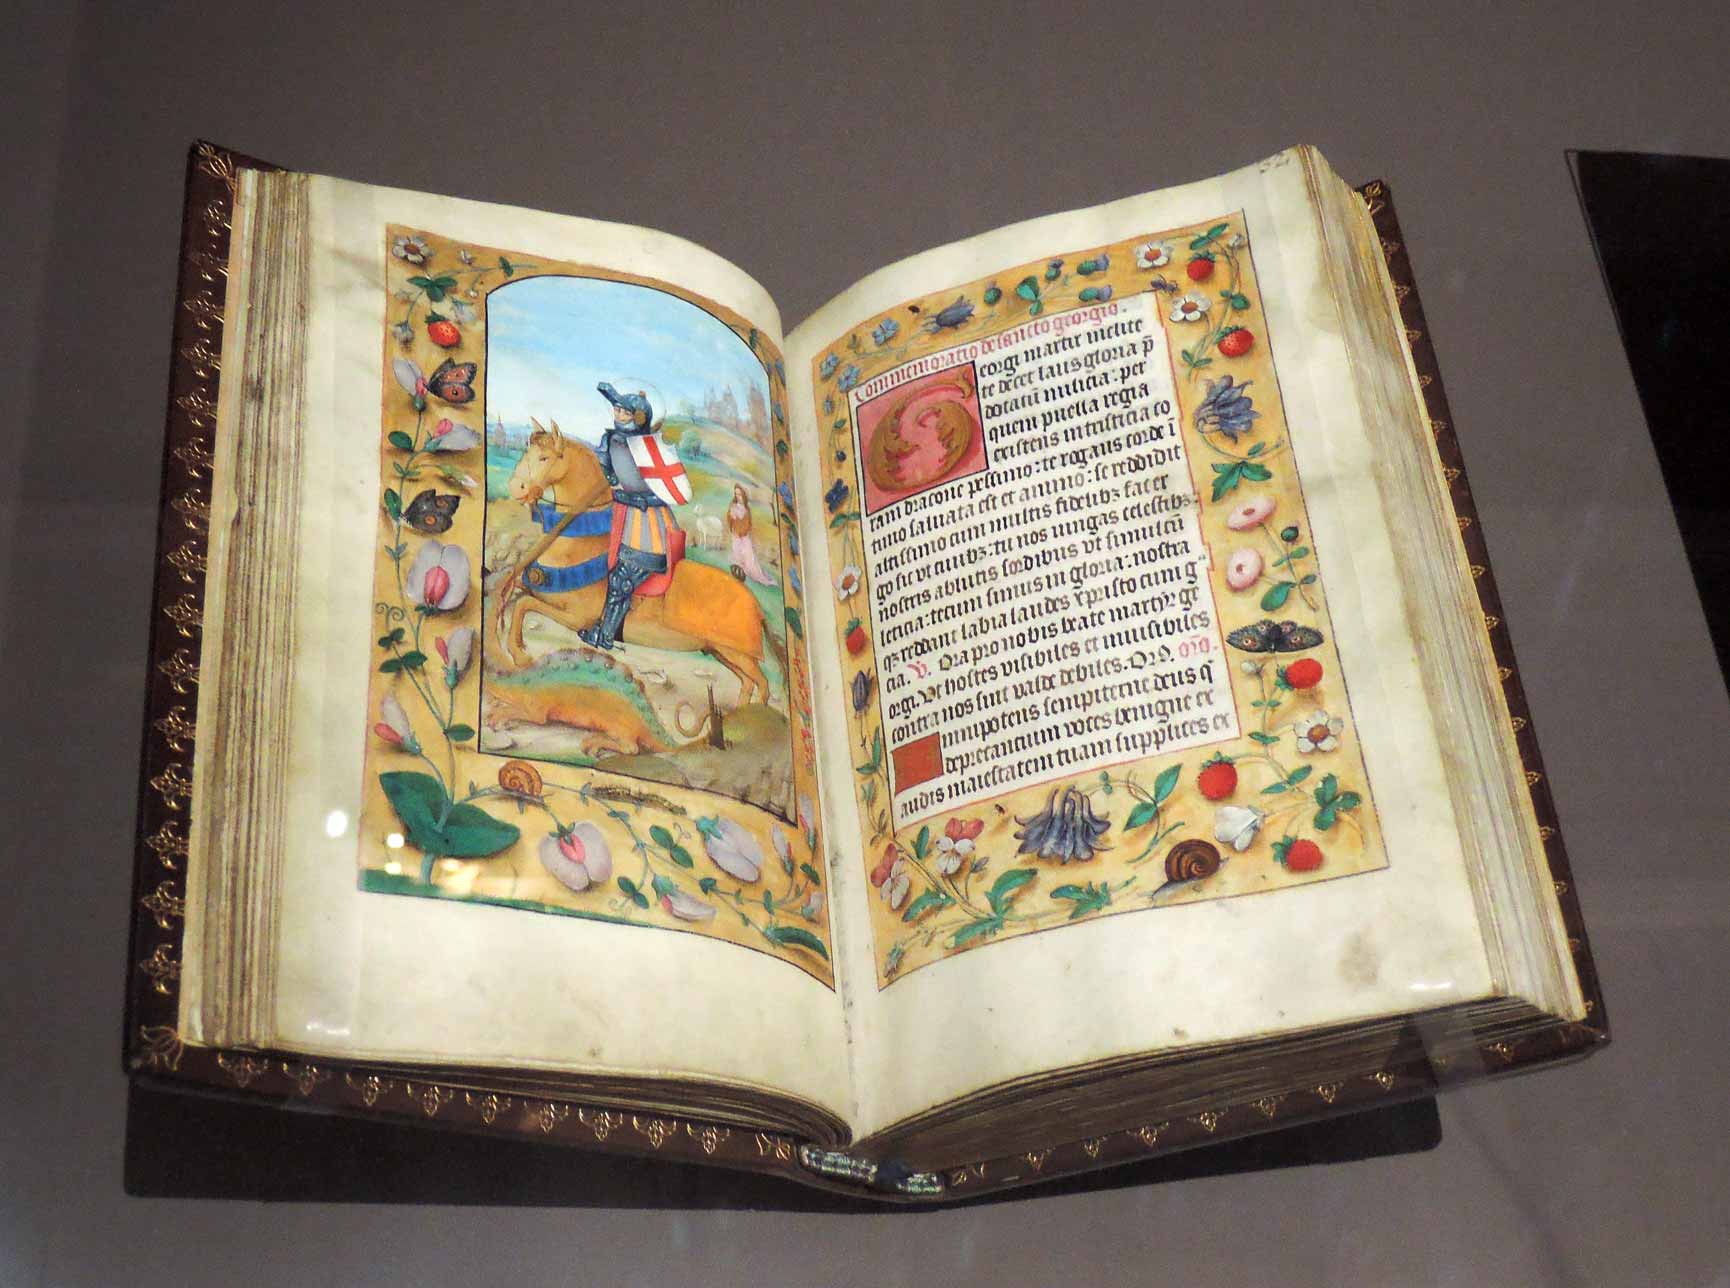 Commemoratio de sancto georgio.
eorgi martir inclite
te decet laus gloria p̄
dotatū milicia: per
quem puella regia
existens in tristicia co
ram dracone pessimo: te rogans corde ī
timo saluata est et animo: se reddidit
altissimo cum multis fidelibꝫ fac er
go sic vt ciuibꝫ: tu nos iungas celestibꝫ:
nostris ablutis sordibus vt simul cū
leticia: tecum simus in gloria: nostra
qꝫ reddant labia laudes xpristo cum ḡ
cia. V. Ora pro nobis beate martyr ge
orgi. Vt hostes visibiles et inuisibiles
contra nos sint valde debiles. Orō. oro.
mnipotens sempiterne deus q̄
deprecantium voces benigne ex
audis maiestatem tuam supplices ex